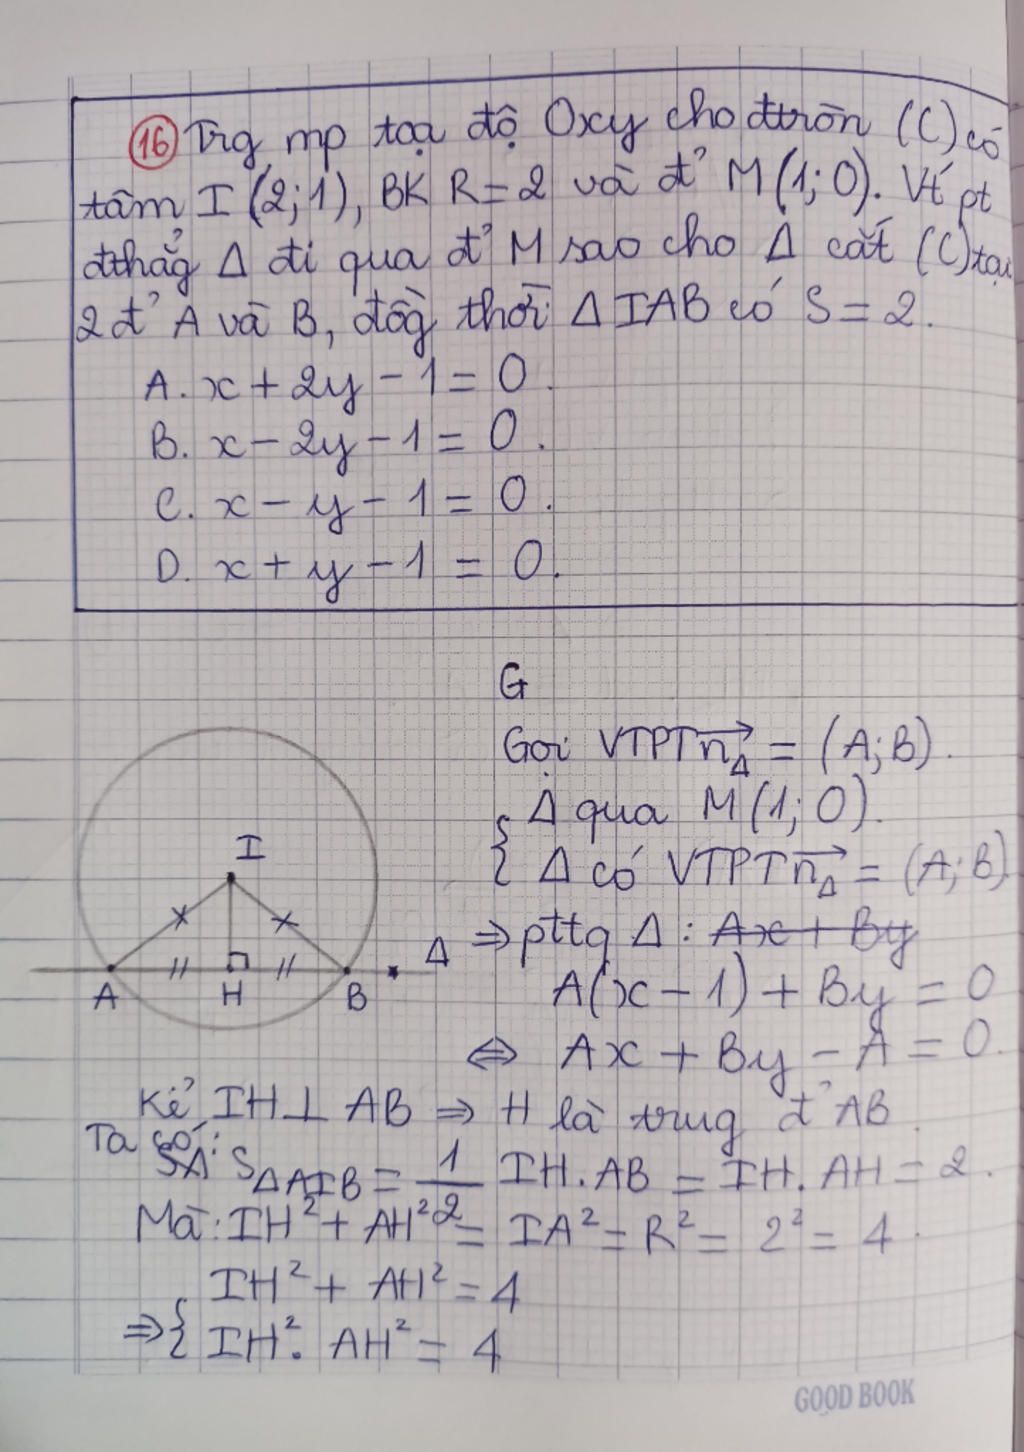 16 Trg mp toạ độ Oxy cho đtròn (C) có
tâm I (2;1), BK R = 2 và đ' M (1; 0). Vt́ pt
đthẳg Δ đi qua đ' M sao cho Δ cắt (C) tại
2 đ' A và B, đồg thời Δ IAB có S = 2.
A. x + 2y - 1 = 0.
B. x - 2y - 1 = 0.
C. x - y - 1 = 0.
D. x + y - 1 = 0.
G
Gọi VTPT n⃗Δ = (A; B).
Δ qua M (1; 0).
{ Δ có VTPT n⃗Δ = (A; B)
I
⇒ pttq Δ : Ax + By
Δ
A(x - 1) + By = 0
A H B
⇔ Ax + By - A = 0.
Kẻ IH ⊥ AB ⇒ H là trug đ' AB.
Ta có:
SΔAIB = 1/2 IH. AB = IH. AH = 2.
Mà: IH² + AH² = IA² = R² = 2² = 4
IH² + AH² = 4
⇒ { IH². AH² = 4
GOOD BOOK